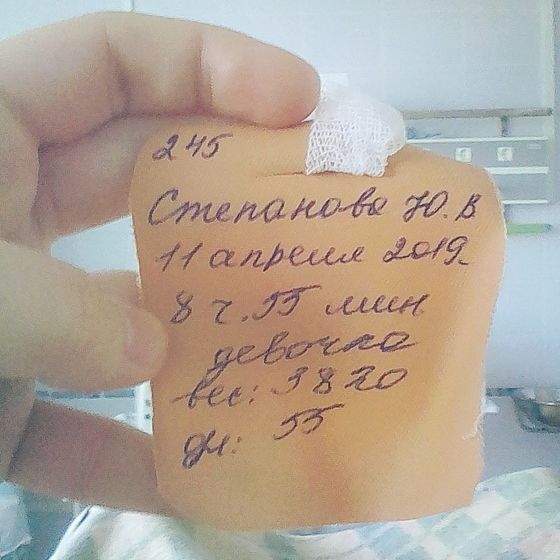 245
Степанова Ю.В
11 апреля 2019
8 ч. 55 мин
девочка
вес: 3820
дл: 55